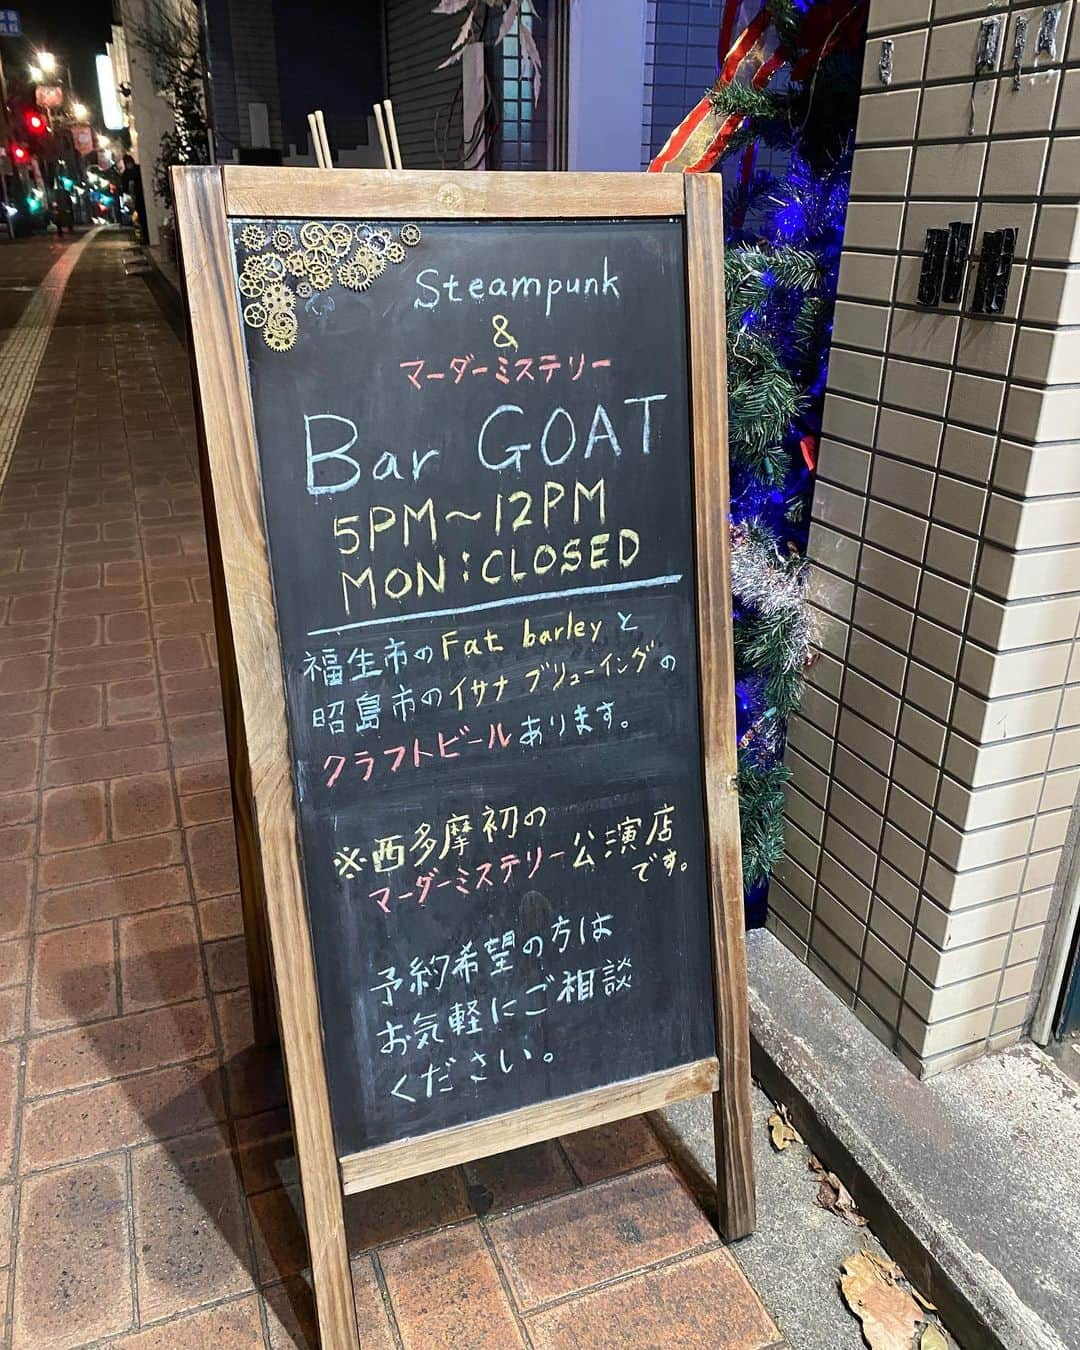 Steampunk
&
マーダーミステリー
Bar GOAT
5PM〜12PM
MON:CLOSED
福生市のFat barleyと
昭島市のイサナブリューイングの
クラフトビールあります。
※西多摩初の
マーダーミステリー公演店
です。
予約希望の方は
お気軽にご相談
ください。